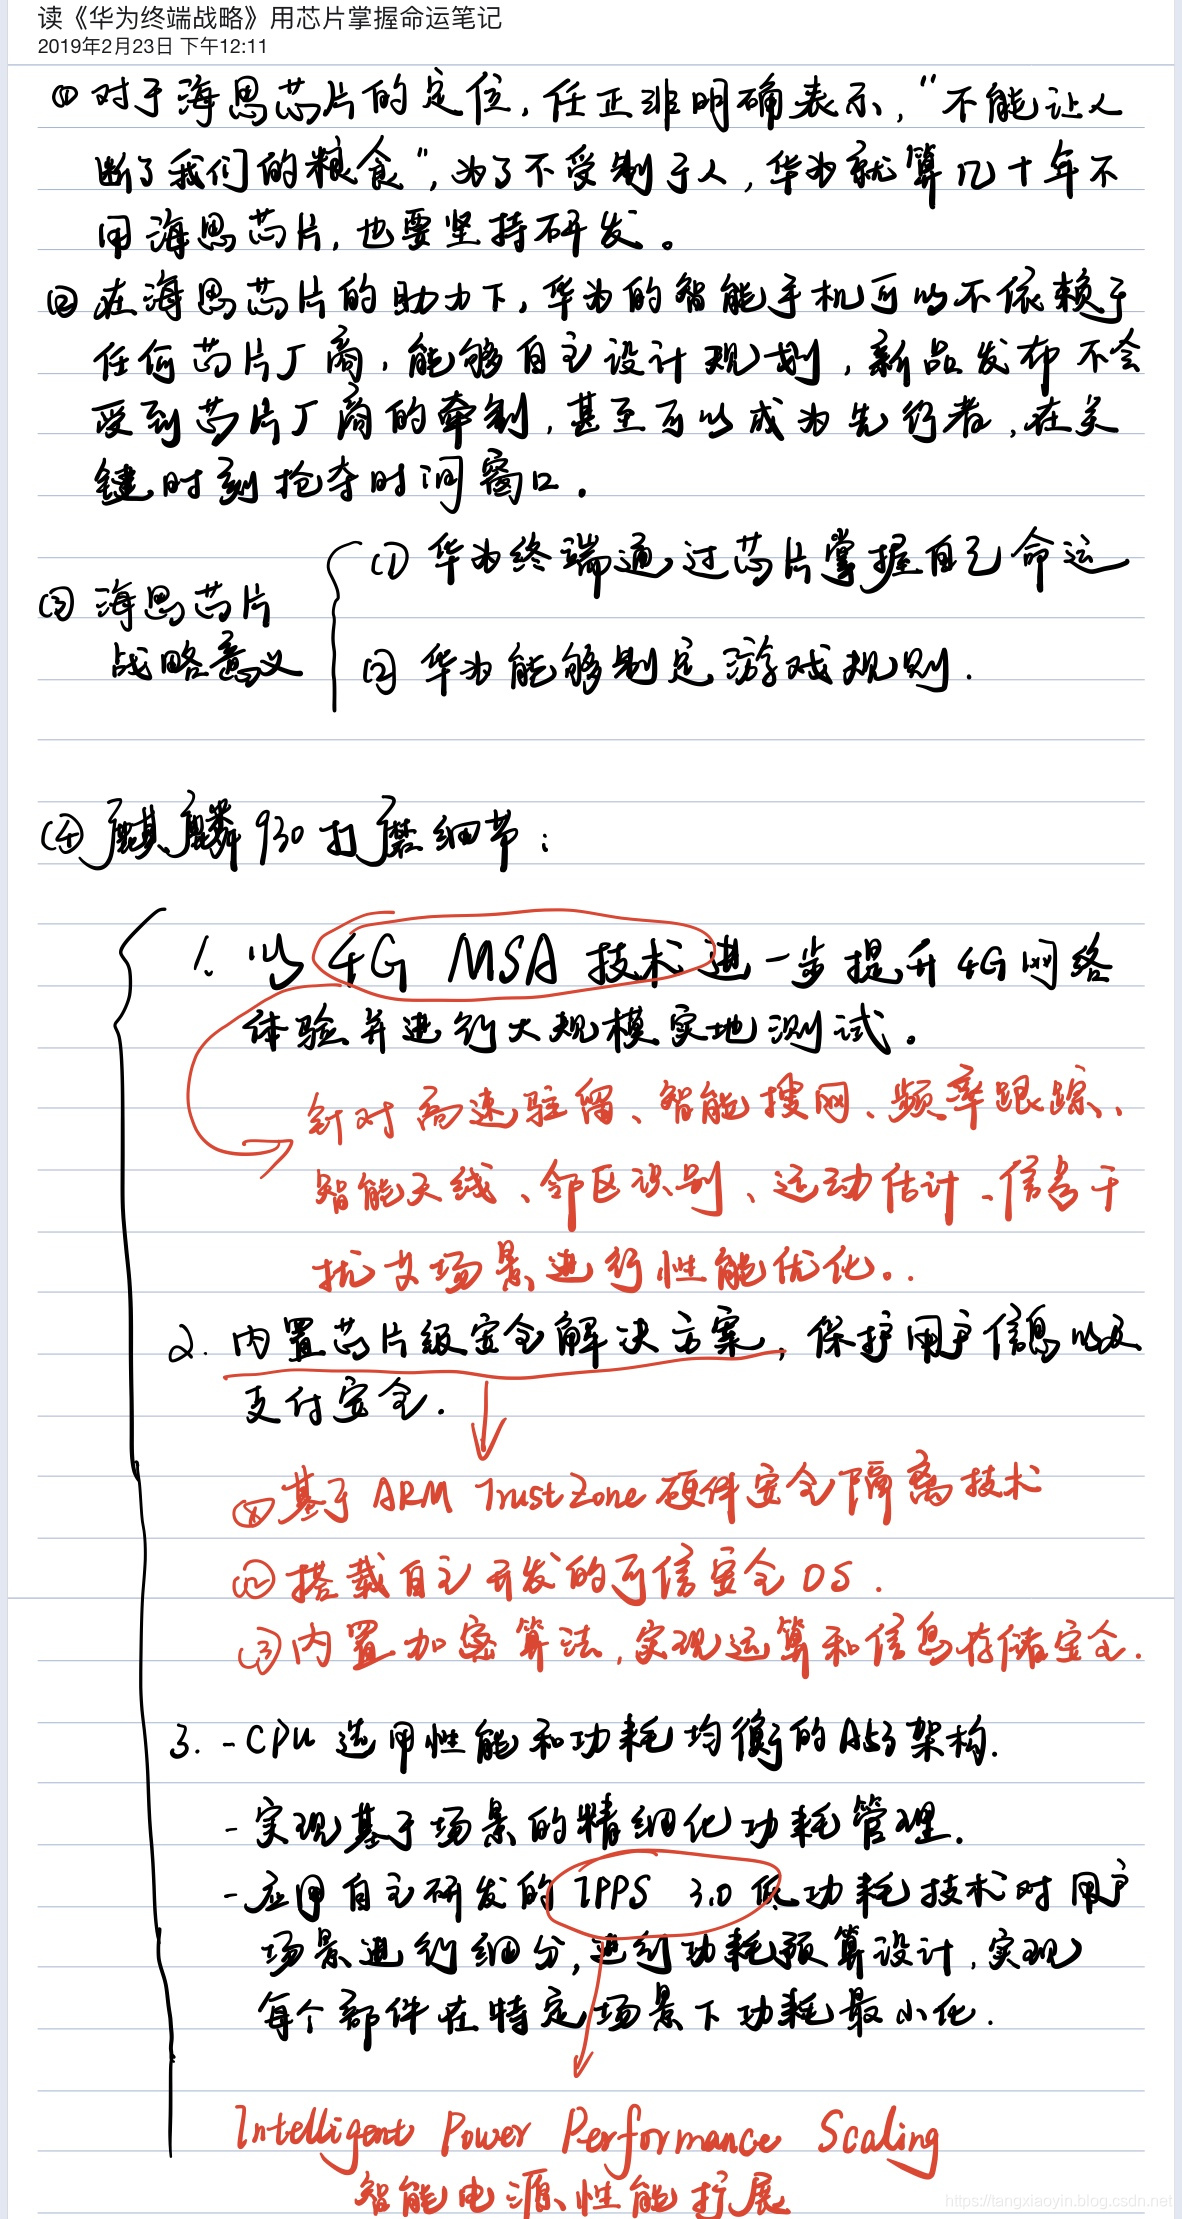 读《华为终端战略》用芯片掌握命运笔记
2019年2月23日 下午12:11
① 对于海思芯片的定位，任正非明确表示，“不能让人
断了我们的粮食”，为了不受制于人，华为就算几十年不
用海思芯片，也要坚持研发。
② 在海思芯片的助力下，华为的智能手机可以不依赖于
任何芯片厂商，能够自主设计规划，新品发布不会
受到芯片厂商的牵制，甚至可以成为先行者，在关
键时刻抢夺时间窗口。
③ 海思芯片
战略意义
(1) 华为终端通过芯片掌握自己命运
(2) 华为能够制定游戏规则.
④ 麒麟930打磨细节：
1. 以4G MSA 技术进一步提升4G网络
体验并进行大规模实地测试。
针对高速驻留、智能搜网、频率跟踪、
智能天线、邻区识别、运动估计、信号干
扰等场景进行性能优化。.
2. 内置芯片级安全解决方案，保护用户信息以及
支付安全.
① 基于ARM TrustZone 硬件安全隔离技术
② 搭载自主开发的可信安全OS.
③ 内置加密算法，实现运算和信息存储安全.
3. - CPU 选用性能和功耗均衡的A53架构.
- 实现基于场景的精细化功耗管理.
- 应用自主研发的IPPS 3.0低功耗技术对用户
场景进行细分，进行功耗预算设计，实现
每个部件在特定场景下功耗最小化.
Intelligent Power Performance Scaling
智能电源性能扩展
https://tangxiaoyin.blog.csdn.net